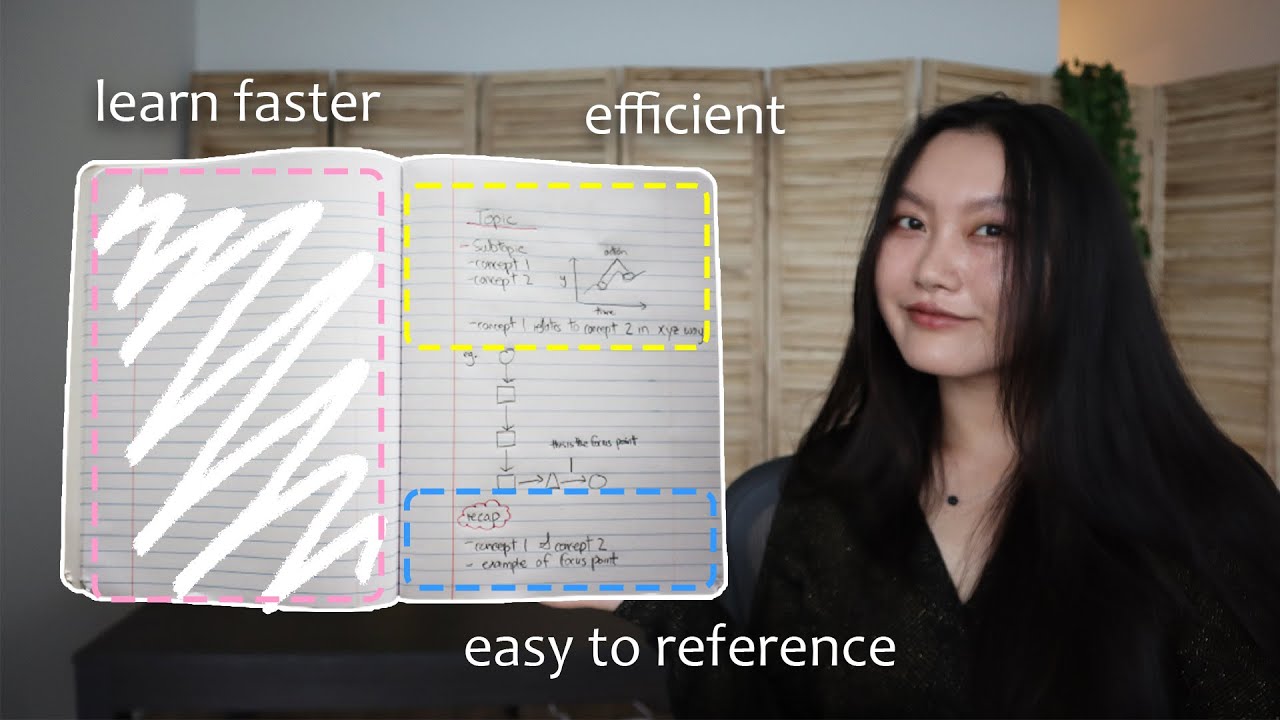 learn faster
efficient
Topic
- Subtopic
- concept 1
- concept 2
y
time
- concept 1 relates to concept 2 in xyz way
eg.
this is the focus point
recap
- concept 1 & concept 2
- example of focus point
easy to reference